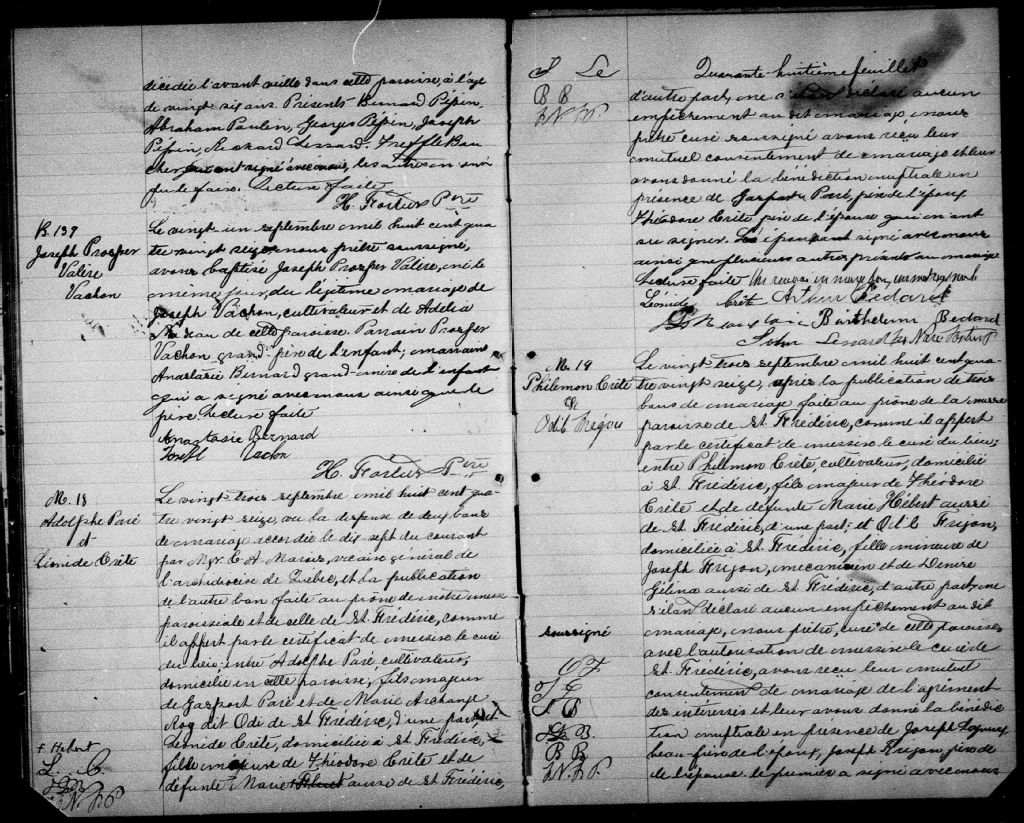 décédée l'avant veille dans cette paroisse, à l'age
de vingt six ans. Présents Bernard Pépin,
Abraham Poulin, Georges Pépin, Joseph
Pépin, Richard Lessard, Trefflé Bou
cher qui ont signé avec nous, les autres on su
le faire. Lecture faite
H. Fortier Ptre
B. 139
Joseph Prosper
Valère
Vachon
Le vingt un septembre mil huit cent qua
tre vingt seize, nous prêtre soussigné,
avons baptisé Joseph Prosper Valère, né le
même jour, du légitime mariage de
Joseph Vachon, cultivateur et de Adelia
Nadeau de cette paroisse. Parrain Prosper
Vachon grand-père de l'enfant; marraine
Anastasie Bernard grand-mère de l'enfant
qui a signé avec nous ainsi que le
père. Lecture faite
Anastasie Bernard
Joseph Vachon
H. Fortier Ptre
M. 18
Adolphe Paré
et
Léonide Crête
Le vingt trois septembre mil huit cent qua
tre vingt seize, vu la dispense de deux bans
de mariage accordée le dix sept du courant
par Mgr. C. A. Marois, vicaire général de
l'archidiocèse de Québec, et la publication
de l'autre ban faite au prône de notre messe
paroissiale et de celle de St. Frédéric, comme
il appert par le certificat de messire le curé
du lieu; entre Adolphe Paré, cultivateur,
domicilié en cette paroisse, fils majeur
de Gaspard Paré et de Marie Archange
Roy dit Odé de St. Frédéric, d'une part, et
Léonide Crête, domiciliée à St. Frédéric,
fille mineure de Théodore Crête et de
défunte Marie aussi de St. Frédéric,
+ Hébert
L. C.
N. P. P
S Le
B B
Quarante-huitième feuillet
d'autre part, ne s'étant déclaré aucun
empêchement au dit mariage, nous
prêtre curé soussigné avons reçu leur
mutuel consentement de mariage et leur
avons donné la bénédiction nuptiale en
présence de Gaspard Paré, père de l'époux,
Théodore Crête père de l'épouse qui n'ont
su signer. Les époux ont signé avec nous
ainsi que plusieurs autres présents au mariage
Lecture faite
Léonide Crête Arthur Bedard
Barthelemi Bedard
John Lessard
M. 19
Philemon Crête
&
Odile Frégon
Le vingt trois septembre mil huit cent qua
tre vingt seize, après la publication de trois
bans de mariage faite au prône de la messe
paroisse de St. Frédéric, comme il appert
par le certificat de messire le curé du lieu;
entre Philemon Crête, cultivateur, domicilié
à St. Frédéric, fils majeur de Théodore
Crête et de défunte Marie Hébert aussi
de St. Frédéric, d'une part; et Odile Frejon,
domiciliée à St. Frédéric, fille mineure de
Joseph Frejon, mécanicien et de Denise
Gélina aussi de St. Frédéric, d'autre part, ne
s'étant déclaré aucun empêchement au dit
mariage, nous prêtre, curé de cette paroisse,
avec l'autorisation de messire le curé de
St. Frédéric, avons reçu leur mutuel
consentement de mariage de l'agrément
des intéressés et leur avons donné la bénédic
tion nuptiale en présence de Joseph
beau-frère de l'époux, Joseph Frejon, père de
l'épouse, le premier a signé avec nous
soussigné
O F
J C
S B
B B